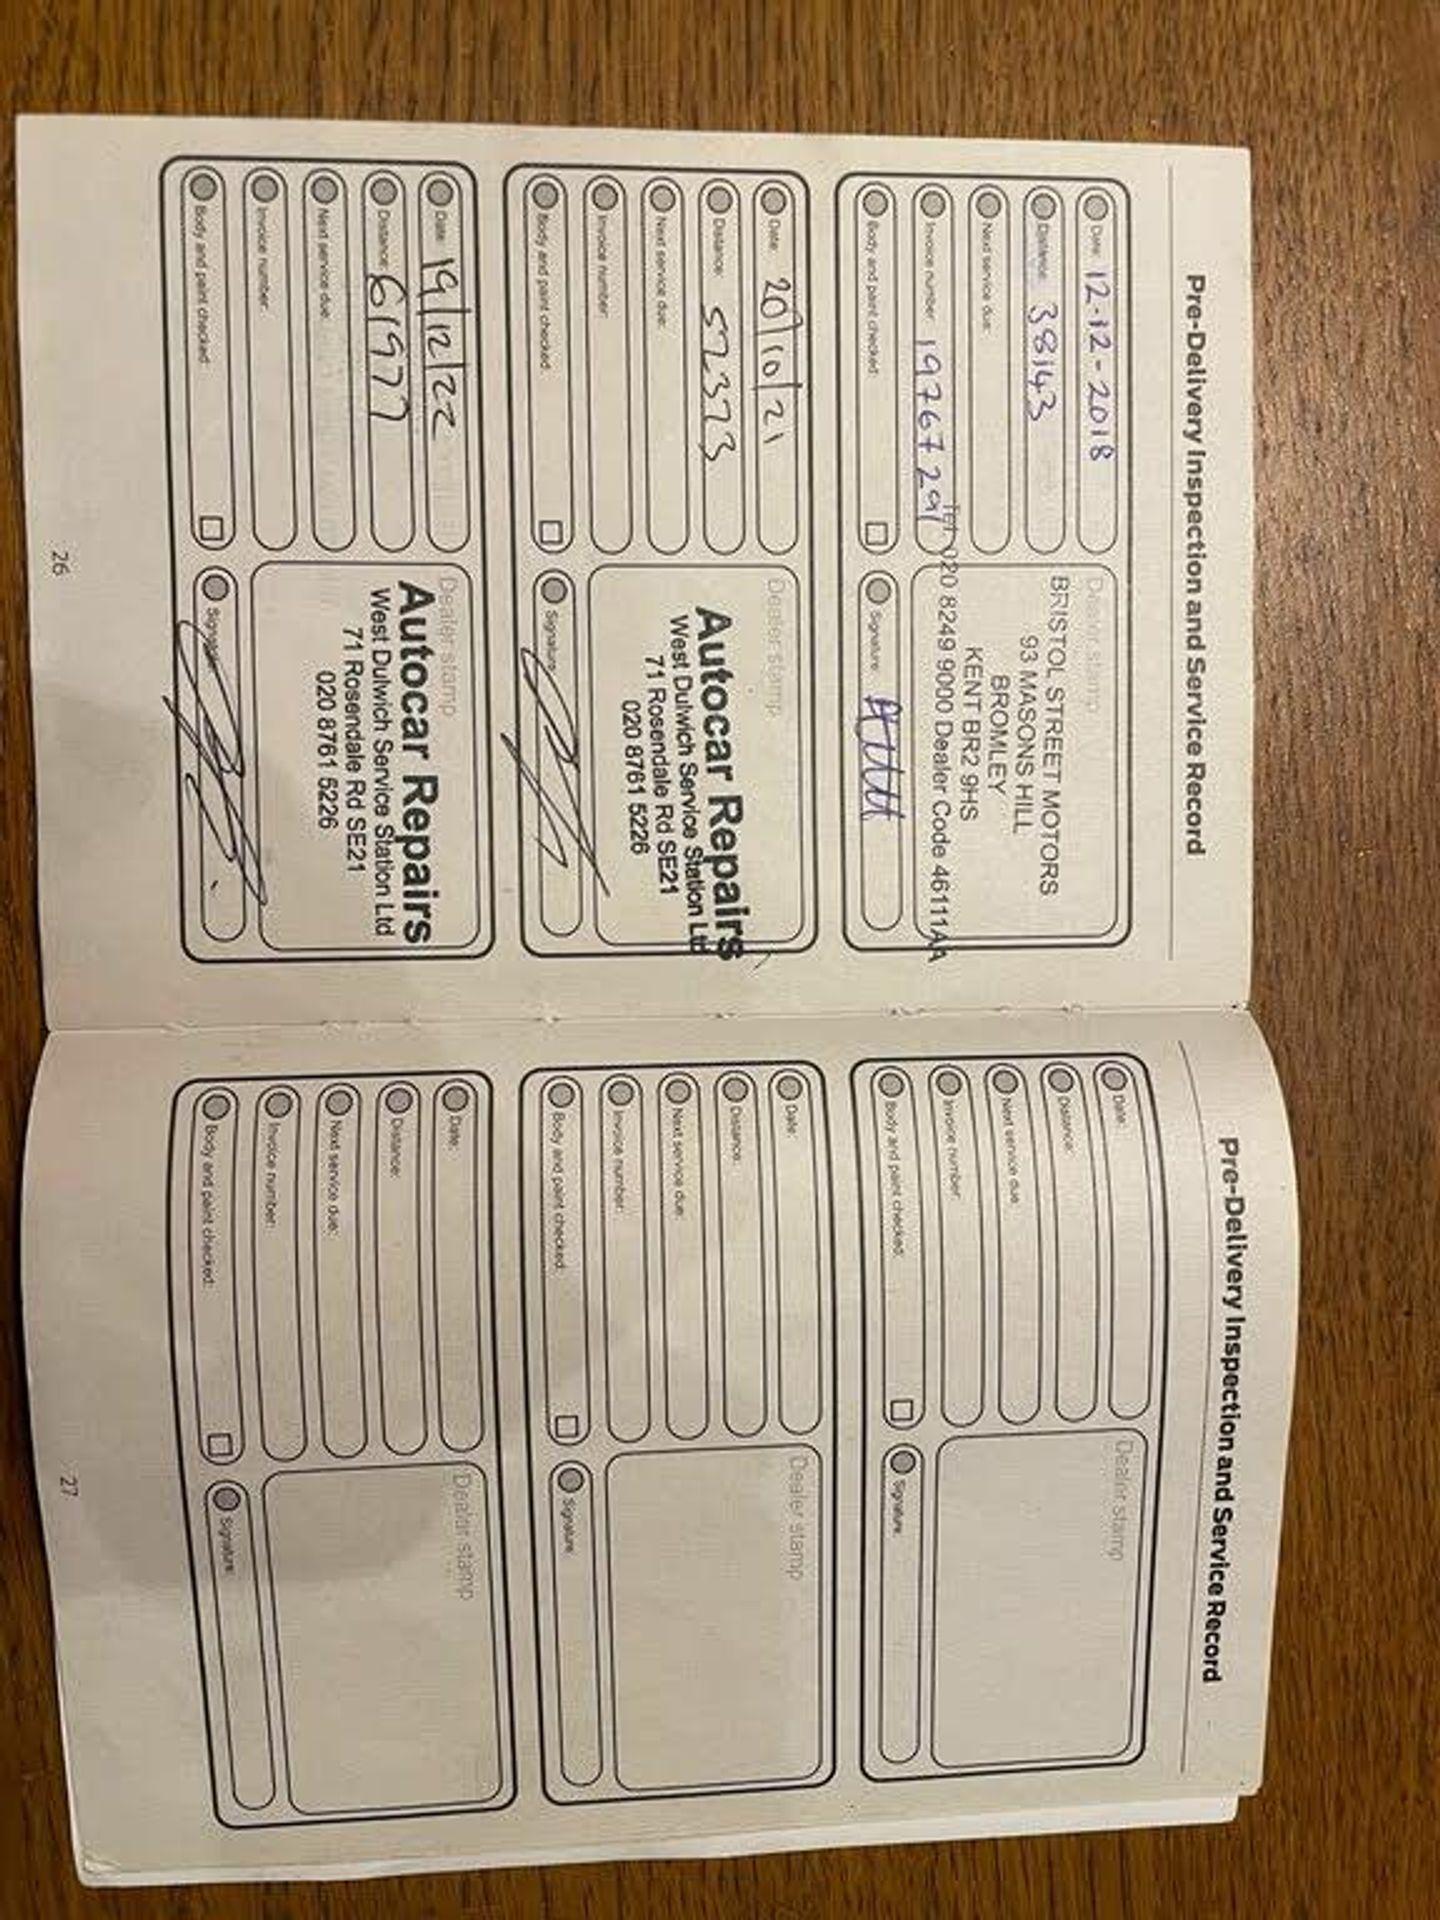 Pre-Delivery Inspection and Service Record
Date: 12-12-2018
Distance: 38143
Next service due:
Invoice number: 19767291
Body and paint checked:
Dealer stamp
BRISTOL STREET MOTORS
93 MASONS HILL
BROMLEY
KENT BR2 9HS
Tel 020 8249 9000 Dealer Code 46111AA
Signature:
Date: 20/10/21
Distance: 52323
Next service due:
Invoice number:
Body and paint checked:
Dealer stamp
Autocar Repairs
West Dulwich Service Station Ltd
71 Rosendale Rd SE21
020 8761 5226
Signature:
Date: 19/12/22
Distance: 61977
Next service due:
Invoice number:
Body and paint checked:
Dealer stamp
Autocar Repairs
West Dulwich Service Station Ltd
71 Rosendale Rd SE21
020 8761 5226
Signature:
26
Pre-Delivery Inspection and Service Record
Date:
Distance:
Next service due:
Invoice number:
Body and paint checked:
Dealer stamp
Signature:
Date:
Distance:
Next service due:
Invoice number:
Body and paint checked:
Dealer stamp
Signature:
Date:
Distance:
Next service due:
Invoice number:
Body and paint checked:
Dealer stamp
Signature:
27